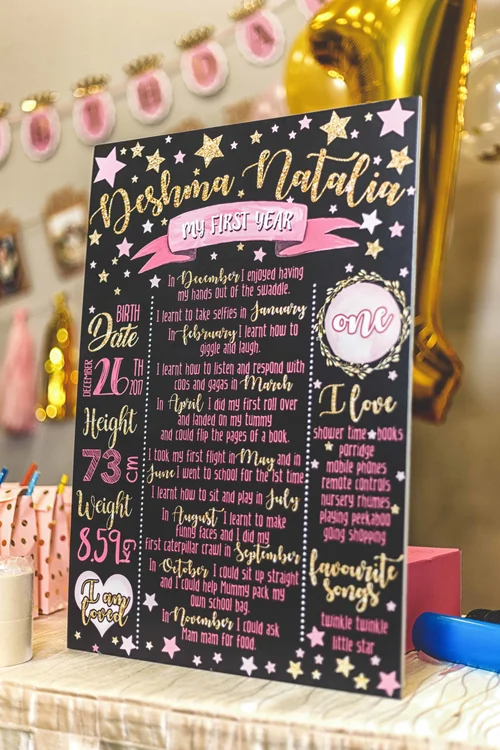 Deshma Natalia
MY FIRST YEAR
In December I enjoyed having
my hands out of the swaddle.
I learnt to take selfies in January
In February I learnt how to
giggle and laugh.
I learnt how to listen and respond with
coos and gagas in March
In April I did my first roll over
and landed on my tummy
and could flip the pages of a book.
I took my first flight in May and in
June I went to school for the 1st time
I learnt how to sit and play in July
In August I learnt to make
funny faces and I did my
first caterpillar crawl in September
In October I could sit up straight
and I could help Mummy pack my
own school bag.
In November I could ask
Mam mam for food.
BIRTH
Date
DECEMBER 26 TH 2017
Height
73 cm
Weight
8.59 kg
I am
loved
one
I love
shower time books
porridge
mobile phones
remote controls
nursery rhymes
playing peekaboo
going shopping
favourite
songs
twinkle twinkle
little star